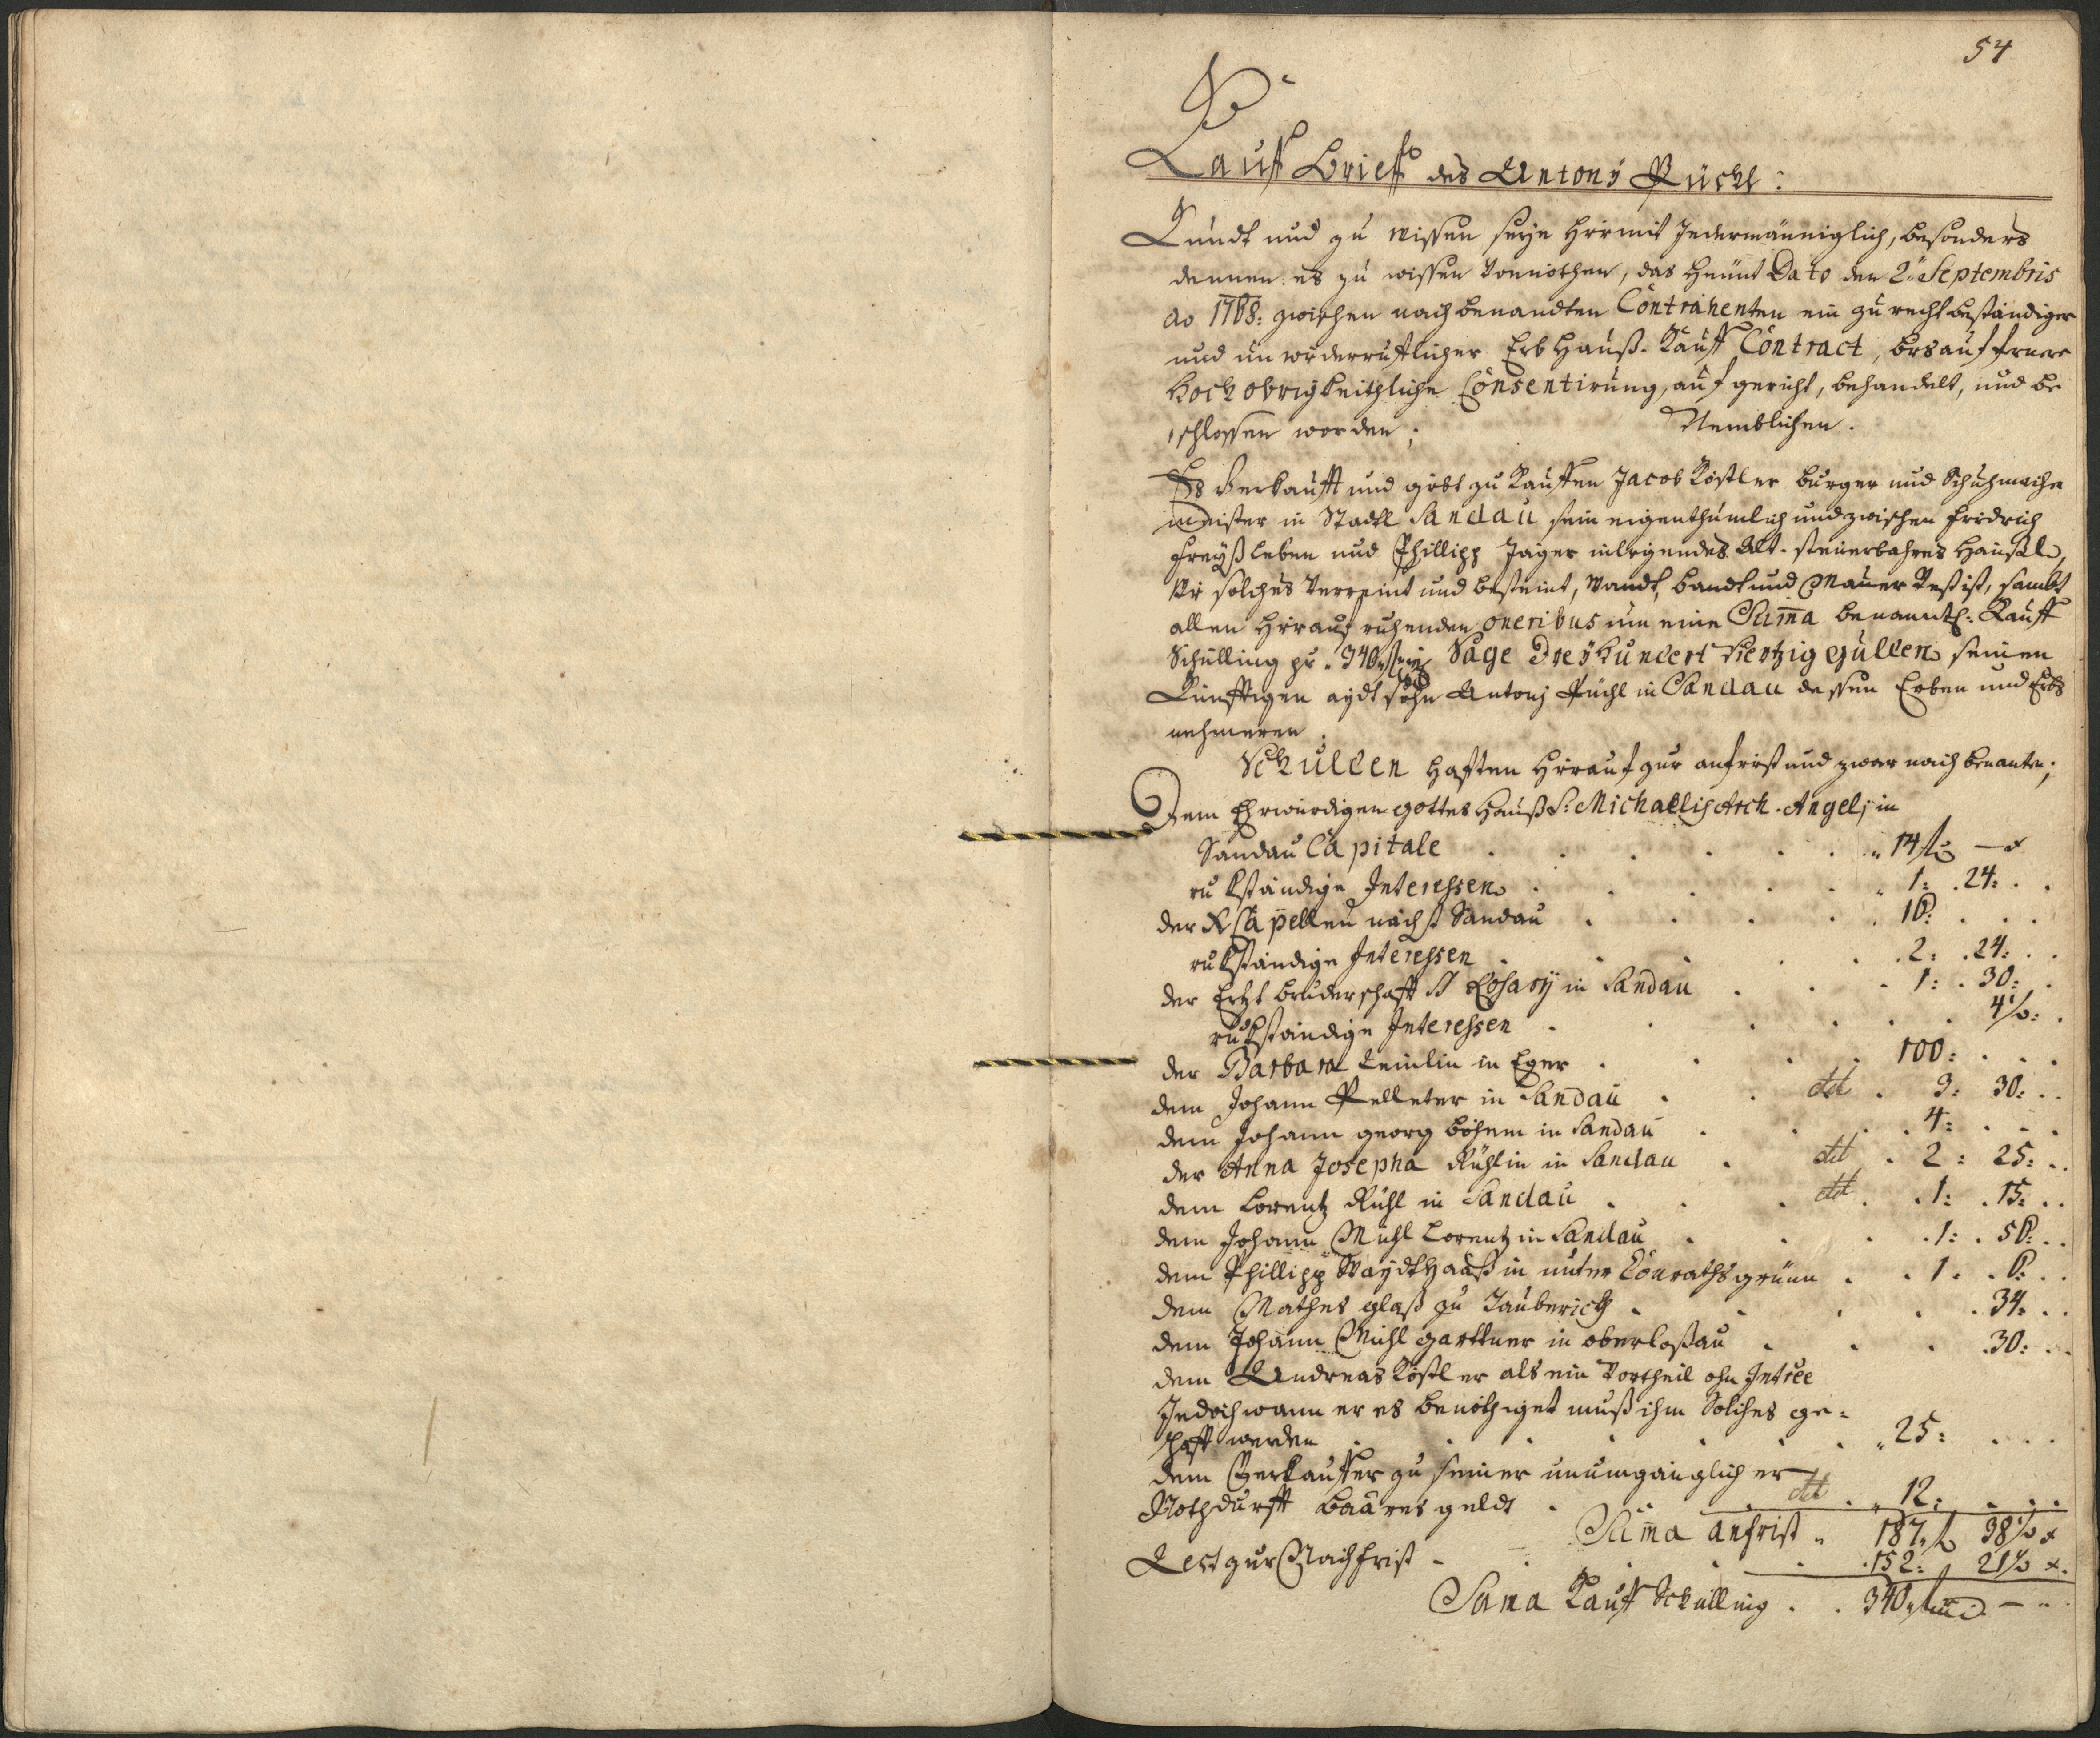 54
Kauff Brieff des Antonÿ Rückl:
Kundt und zu wissen seÿe hirmit Jedermänniglich, besonders
dennen es zu wissen vonnöthen, das heünt Dato den 2. Septembris
ao 1768: zwischen nachbenandten Contrahenten ein zu recht beständiger
und unwiderrufflicher Erb Hauß-Kauff Contract, bis auf fernere
Hoch obrigkeithliche Consentirung, aufgericht, behandelt, und be
schlossen worden; Nemblichen.
Es Verkaufft und gibt zu Kauffen Jacob Köstler burger und Schuhmacher
meister in Stadtl Sandau sein eigenthumlich und zwischen Fridrich
Freÿßleben und Phillipp Jäger inligendes Alt-steuerbahres Häusel,
wie solches verreint und besteint, Wandt, bandt und Mauer Vest ist, sambt
allen hierauf ruhenden oneribus um eine Suma benanntl: Kauff
Schilling pr. 340 f Sage Dreÿhundert Viertzig gulden seinen
Künfftigen aÿdt sohn Antonj Rückl in Sandau dessen Erben und Erbs
nehmeren.
Schulden hafften hierauf zur anfrist und zwar nach benante;
Dem Ehrwürdigen gottes Hauß S: Michaelis Arch-Angelj in
Sandau Capitale . . . . . 14 f — x
rukständige Interessen . . . . 1: 24: . .
der X Capellen nächst Sandau . . . . 16: . . .
rukständige Interessen . . . . 2: 24: . .
der Ertzt bruderschafft SS Rosarÿ in Sandau . . . 1: 30: .
rükständige Interessen . . . . . 4½: .
der Barbara Leinlin in Eger . . . . 100: . . .
dem Johann Pelleter in Sandau . . dt . 3: 30: . .
dem Johann georg böhem in Sandau . . . 4: . . .
der Anna Josepha Rühlin in Sandau . dt . 2: 25: . .
dem Lorentz Rühl in Sandau . . . dt . 1: 15: . .
dem Johann Mühl Lorentz in Sandau . . . 1: 56: . .
dem Phillipp Waÿdthaaß in unter Conrathsgrünn . . 1. 6: . .
dem Mathes glaß zu Tauberich . . . . . 34: . .
dem Johann Mühl gärttner in oberloßau . . . 30: . .
dem Andreas Köstler als ein Vortheil ohn Intree
Jedoch wann er es benöthiget muß ihm Solches ge=
schafft werden . . . . . . 25: . . .
dem Verkauffer zu seiner unumgänglich er
Nothdurfft baares geldt . . . dt . 12: . . .
Suma anfrist . 187 f 38½ x
Rest zur Nachfrist . . . . . 152: 21½ x.
Suma Kauff Schilling . . 340 f — . .